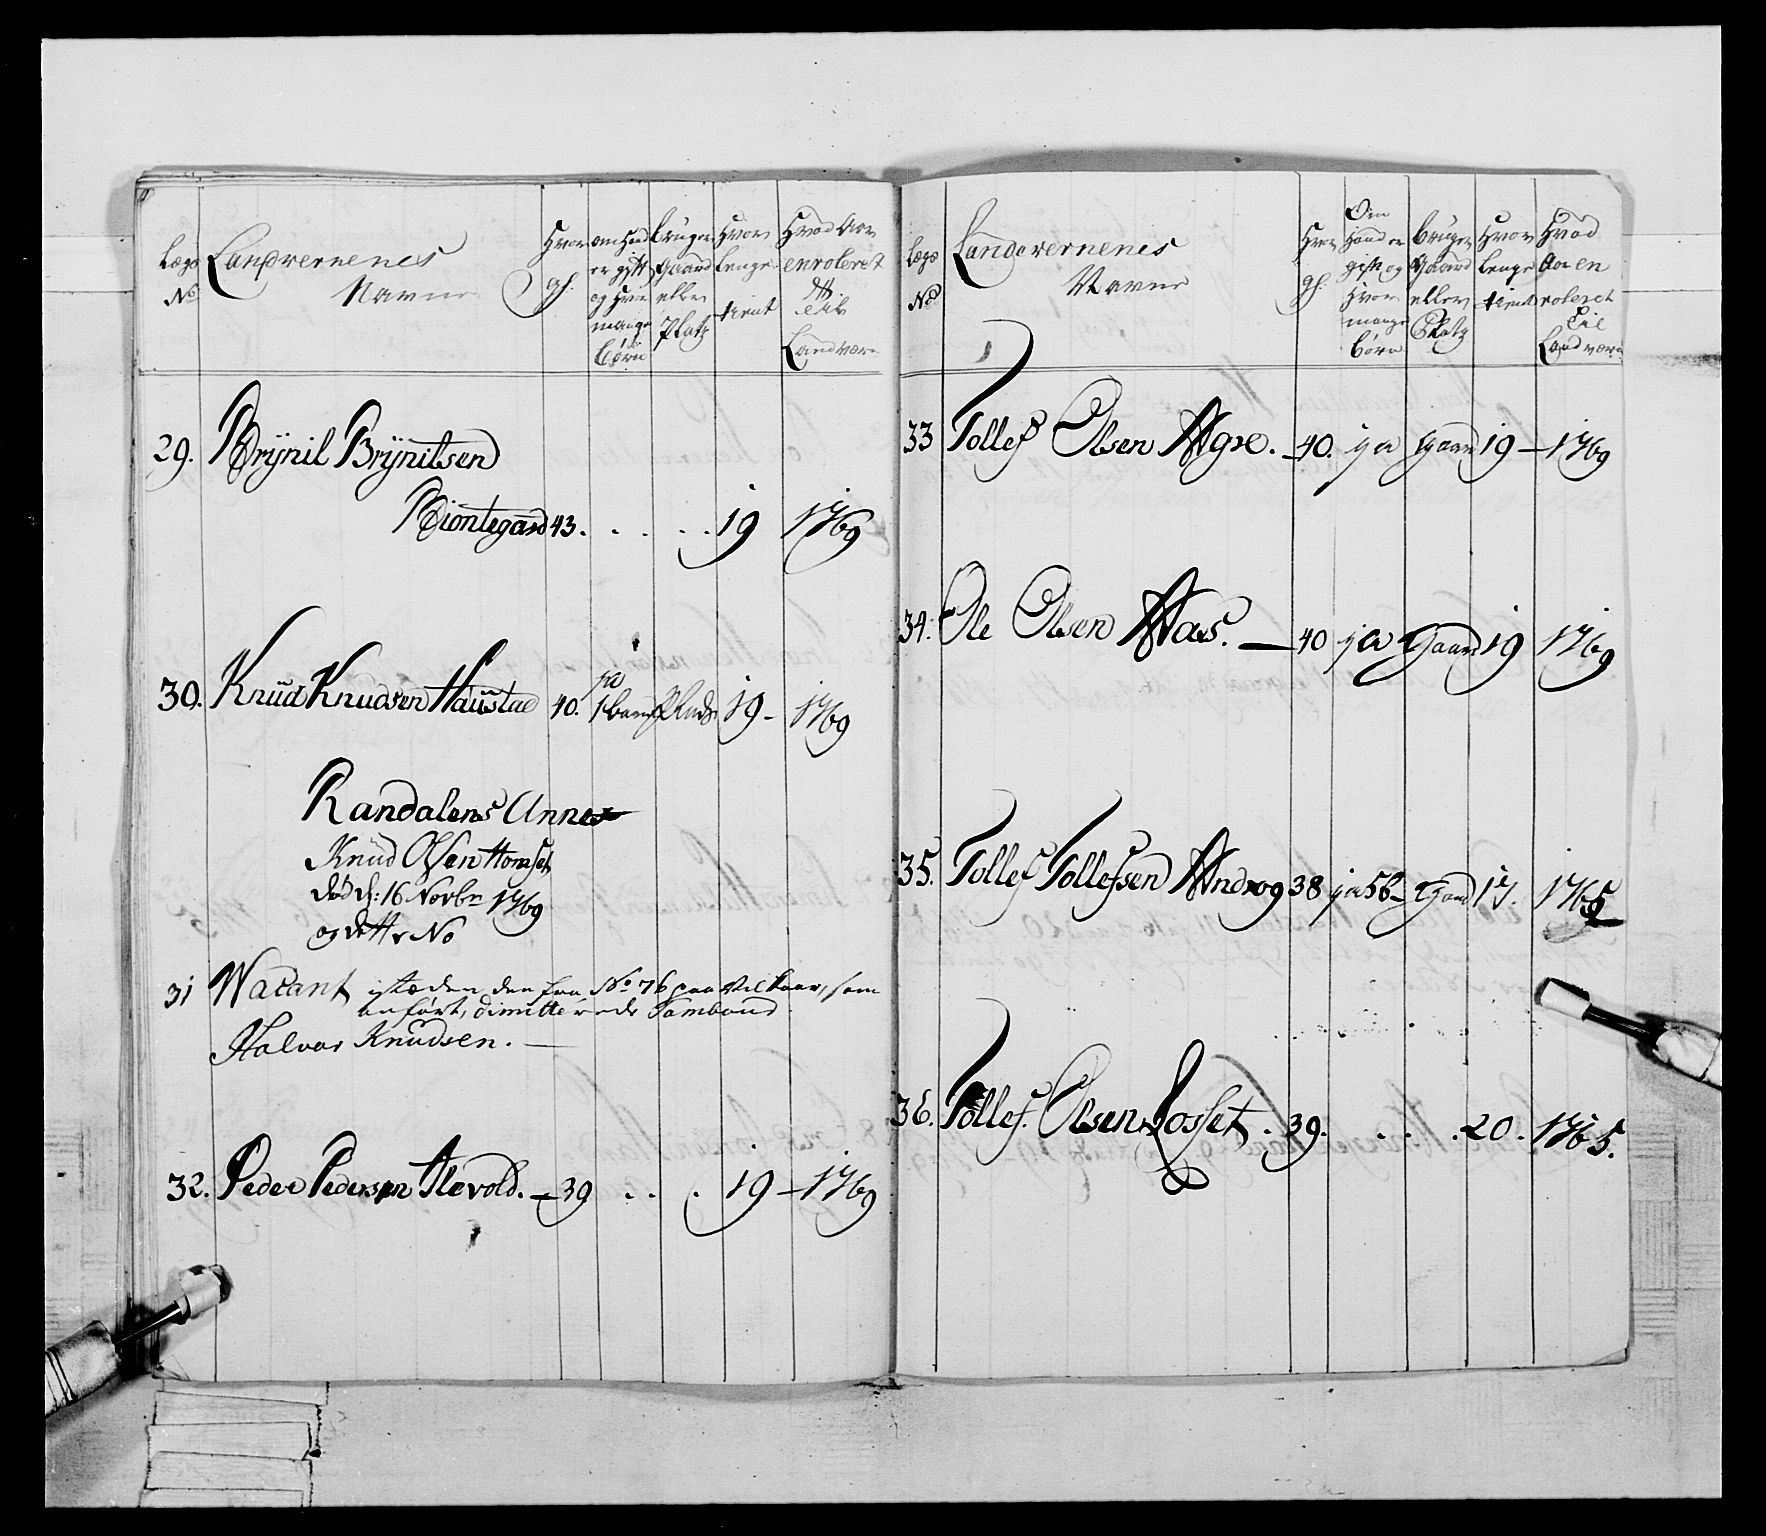 Lægs No
Landvernenes Navne
Hvor gl.
om hand er gift og Hvor mange børn
bruger gaard eller Platz
Hvor lenge tient
Hvad Aar enroleret til Landværn
29. Brynil Brynilsen
Biontegard 43. . . . . 19 1769
ja
30. Knud Knudsen Haustad 40. 1 barn Plads 19 - 1769
Randalens Annex
Knud Olsen Homset
død d: 16 Novbr 1769
og dette No
31 Wacant istæden den fra No 76 paa Vilkaar, som
anført, dimitterede Tambour
Halvor Knudsen. —
32. Peder Pedersen Alevold. — 39 . . . 19 — 1769
Lægs No
Landevernenes Navne
Hvor gl.
Om Hand er gift og Hvor mange børn
bruger Gaard eller Platz
Hvor lenge tient
Hvad Aar enroleret til Landværn
33 Tollef Olsen Agre. — 40. ja Gaard 19 — 1769
34. Ole Olsen Aas. — 40 ja Gaard 19 1769
35. Tollef Tollefsen Androg 38 ja 5 b Gaard 17. 1765
36. Tollef. Olsen Losset. 39. . . . 20. 1765.